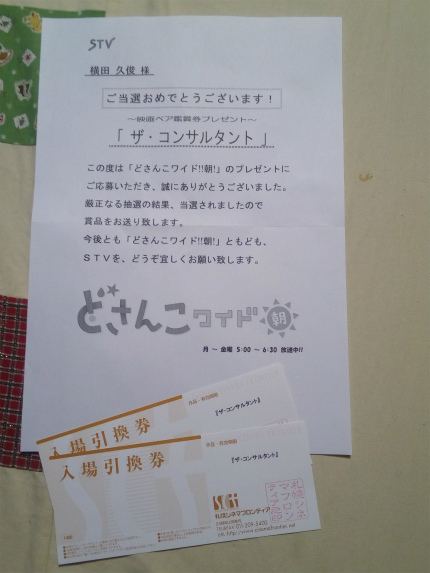 STV
横田 久俊 様
ご当選おめでとうございます！
～映画ペア鑑賞券プレゼント～
「 ザ・コンサルタント 」
この度は「どさんこワイド!!朝!」のプレゼントに
ご応募いただき、誠にありがとうございました。
厳正なる抽選の結果、当選されましたので
賞品をお送り致します。
今後とも「どさんこワイド!!朝!」ともども、
ＳＴＶを、どうぞ宜しくお願い致します。
どさんこワイド朝
月 ～ 金曜 5:00 ～ 6:30 放送中!!
入場引換券
『ザ・コンサルタント』
入場引換券
『ザ・コンサルタント』
札幌シネマフロンティア
札幌シネ
マフロン
ティア